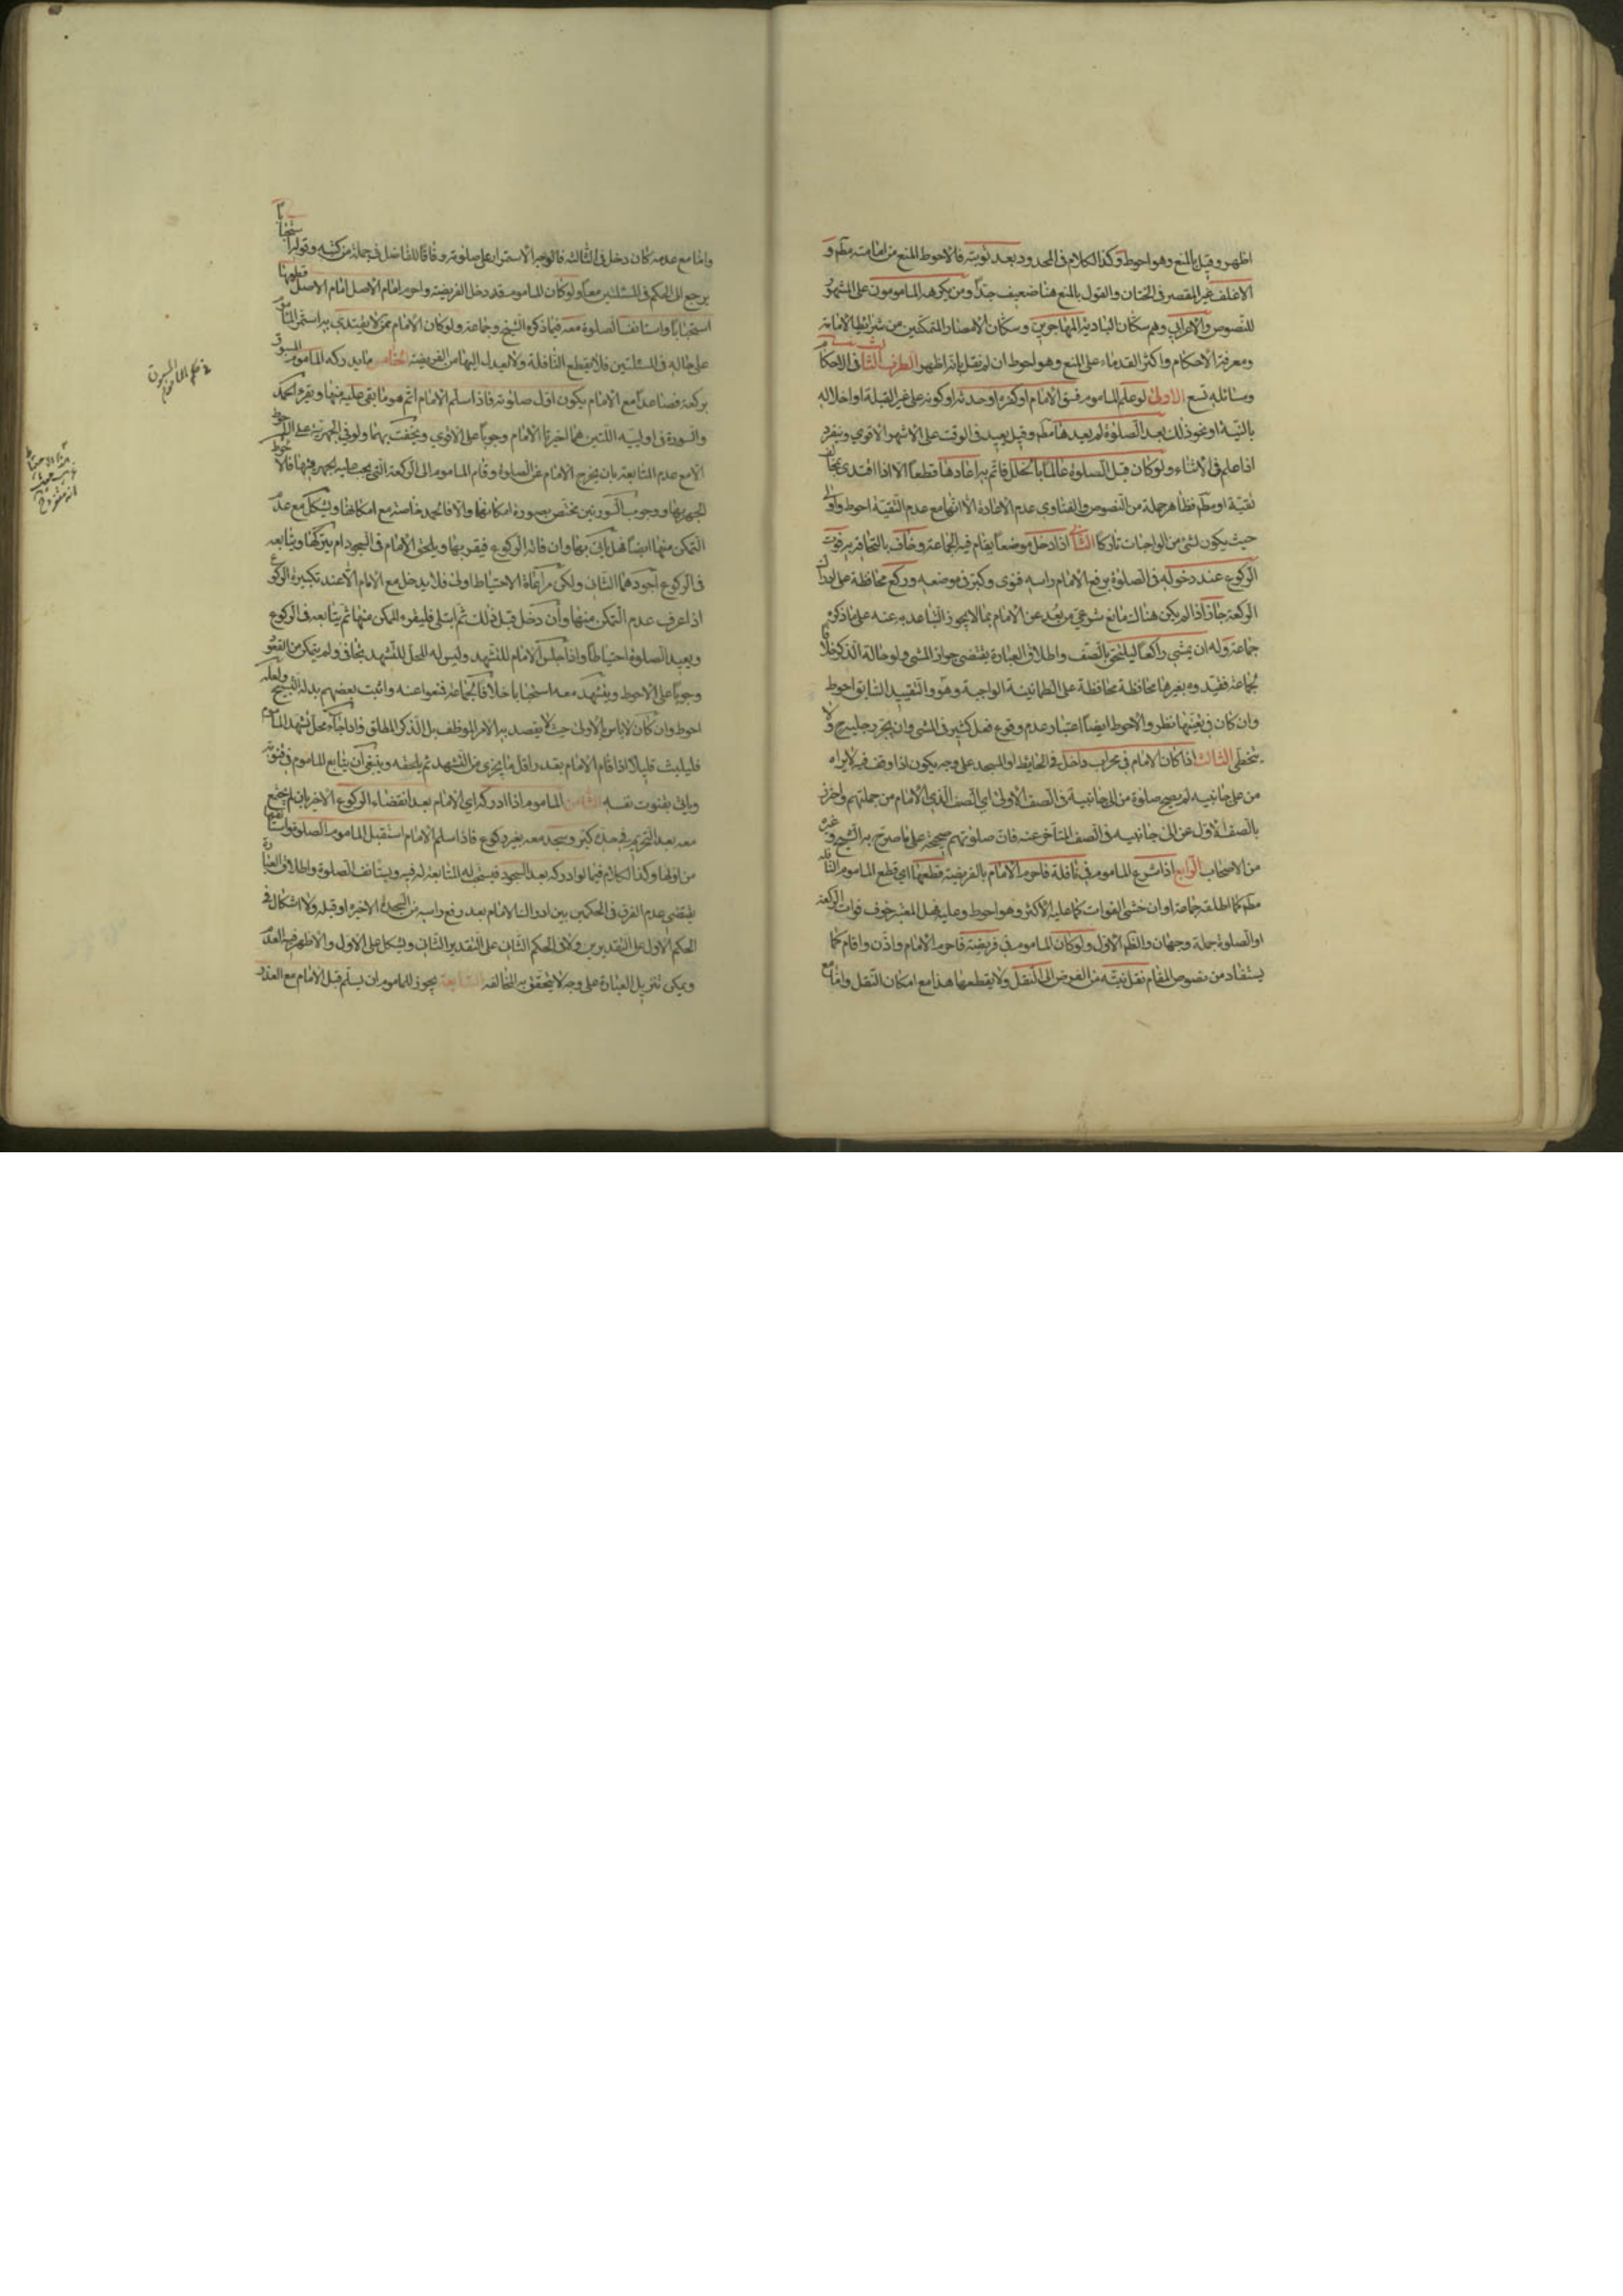 اظهر وقيل بالمنع وهو احوط وكذا الكلام في المحدود بعد توبته فالاحوط المنع من امامته مطم و
الاغلف غير المقصر في الختان والقول بالمنع هنا ضعيف جدّا ومن يكرهه المامومون على المشهور
للنصوص والاعرابي وهم سكان البادية المهاجرين وسكان الامصار المتمكنين من شرايط الامامة
ومعرفة الاحكام واكثر القدماء على المنع وهو احوط ان لم نقل بانه اظهر الطرف الثالث في الاحكام
ومسائله تسع الاولى لو علم الماموم فسق الامام او كفره او حدثه او كونه على غير القبلة او اخلاله
بالنية او نحو ذلك بعد الصلوة لم يعدها مطم وقيل يعيد في الوقت على الاشهر الاقوى وينفرد
اذا علم في الاثناء ولو كان قبل الصلوة عالما بالخلل فاتم به اعادها قطعا الا اذا اقتدى بمخالف
تقية او مطم فظاهر جملة من النصوص والفتاوى عدم الاعادة الا انها مع عدم التقية احوط واولى
حيث يكون لشئ من الواجبات تاركا الثانية اذا دخل موضعا يقام فيه الجماعة وخاف بالتحاقه به فوت
الركوع عند دخوله في الصلوة برفع الامام راسه فنوى وكبر في موضعه وركع محافظة على ادراك
الركعة جاز اذا لم يكن هناك مانع شرعي من بعد عن الامام بما لا يجوز التباعد به عنه على ما ذكره
جماعة وله ان يمشي راكعا ليلتحق بالصف واطلاق العبارة يقتضي جواز المشي ولو حالة الذكر خلافا
لجماعة فقيدوه بغيرها محافظة على الطمانينة الواجبة وهو والتقييد السابق احوط
وان كان في تعينها نظر والاحوط ايضا اعتبار عدم وقوع فعل كثير في المشي وان يجر رجليه ولا
يتخطى الثالثة اذا كان الامام في محراب داخل في الحايط او المسجد على وجه يكون اذا وقف فيه لا يراه
من على جانبيه لم يصح صلوة من الى جانبيه في الصف الاول اي الصف الذي الامام من جملتهم واحترز
بالصف الاول عن الى جانبيه في الصف المتاخر عنه فان صلوتهم صحيحة على ما صرح به الشيخ وغيره
من الاصحاب الرابعة اذا شرع الماموم في نافلة فاحرم الامام بالفريضة قطعها اي قطع الماموم النافلة
مطم كما اطلقه جماعة او ان خشي الفوات كما عليه الاكثر وهو احوط وعليه فهل المعتبر خوف فوات الركعة
او الصلوة جملة وجهان والظم الاول ولو كان الماموم في فريضة فاحرم الامام واذن واقام كما
يستفاد من نصوص المقام نقل نيته من الفرض الى النقل ولا يقطعها هذا مع امكان النقل واما مع
واما مع عدمه كان دخل في الثالثة فالوجه الاستمرار على صلوته وفاقا للفاضل في جملة من كتبه وقوله استحبابا
يرجع الى الحكم في المسئلتين معا ولو كان الماموم قد دخل الفريضة واحرم امام الاصل امام الاصل قطعها
استحبابا واستانف الصلوة معه فيما ذكره الشيخ وجماعة ولو كان الامام ممن لا يقتدى به استمر الماموم
على حاله في المسئلتين فلا يقطع النافلة ولا يعدل اليها من الفريضة الخامسة ما يدركه الماموم المسبوق
بركعة فصاعدا مع الامام يكون اول صلوته فاذا سلم الامام اتم هو ما بقى عليه منها ويقرء الحمد
والسورة في اوليته اللتين هما اخيرتا الامام وجوبا على الاقوى ويخفت بهما ولو في الجهرية على الاحوط
الا مع عدم المتابعة بان يخرج الامام عن الصلوة وقام الماموم الى الركعة التي يجب عليه الجهر فيها فالاحوط
الجهر بها ووجوب السورتين يختص بصورة امكانهما والا فالحمد خاصة مع امكانها ويشكل مع عدم
التمكن منها ايضا فهل ياتى بها وان فاته الركوع فيقرء بها ويلحق الامام في السجود ام يتركها ويتابعه
في الركوع اجودهما الثاني ولكن مراعاة الاحتياط اولى فلا يدخل مع الامام الا عند تكبيرة الركوع
اذا عرف عدم التمكن منها وان دخل قبل ذلك ثم ابتلى فليقرء الممكن منها ثم يتابعه في الركوع
ويعيد الصلوة احتياطا واذا جلس الامام للتشهد وليس له المحل للتشهد تجافى ولم يتمكن من القعود
وجوبا على الاحوط ويتشهد معه استحبابا خلافا لجماعة فمنعوا عنه واثبت بعضهم بدله التسبيح ولعله
احوط وان كان لا باس بالاولى حيث لا يقصد به الامر الموظف بل الذكر المطلق واذا جاء محل تشهد الماموم
فليلبث قليلا اذا قام الامام بقدر اقل ما يجزى من التشهد ثم يلحقه وينبغى ان يتابع الماموم في قنوته
وياتى بقنوت نفسه الثامن الماموم اذا ادركه اي الامام بعد انقضاء الركوع الاخير بان لم يجتمع
معه بعد التحريم في حده كبر وسجد معه بغير ركوع فاذا سلم الامام استقبل الماموم الصلوة واستانفها
من اولها وكذا الكلام فيما لو ادركه بعد السجود فيستحب له المتابعة له فيه ويستانف الصلوة واطلاق العبارة
يقتضى عدم الفرق في الحكمين بين ادراك الامام بعد رفع راسه من السجدة الاخيرة او قبله ولا اشكال في
الحكم الاول على التقديرين ولا في الحكم الثاني على التقدير الثاني ويشكل على الاول والاظهر فيه العدم
ويمكن تنزيل العبارة على وجه لا يتحقق به المخالفة السابعة يجوز للماموم ان يسلم قبل الامام مع العذر
في حكم الماموم المسبوق